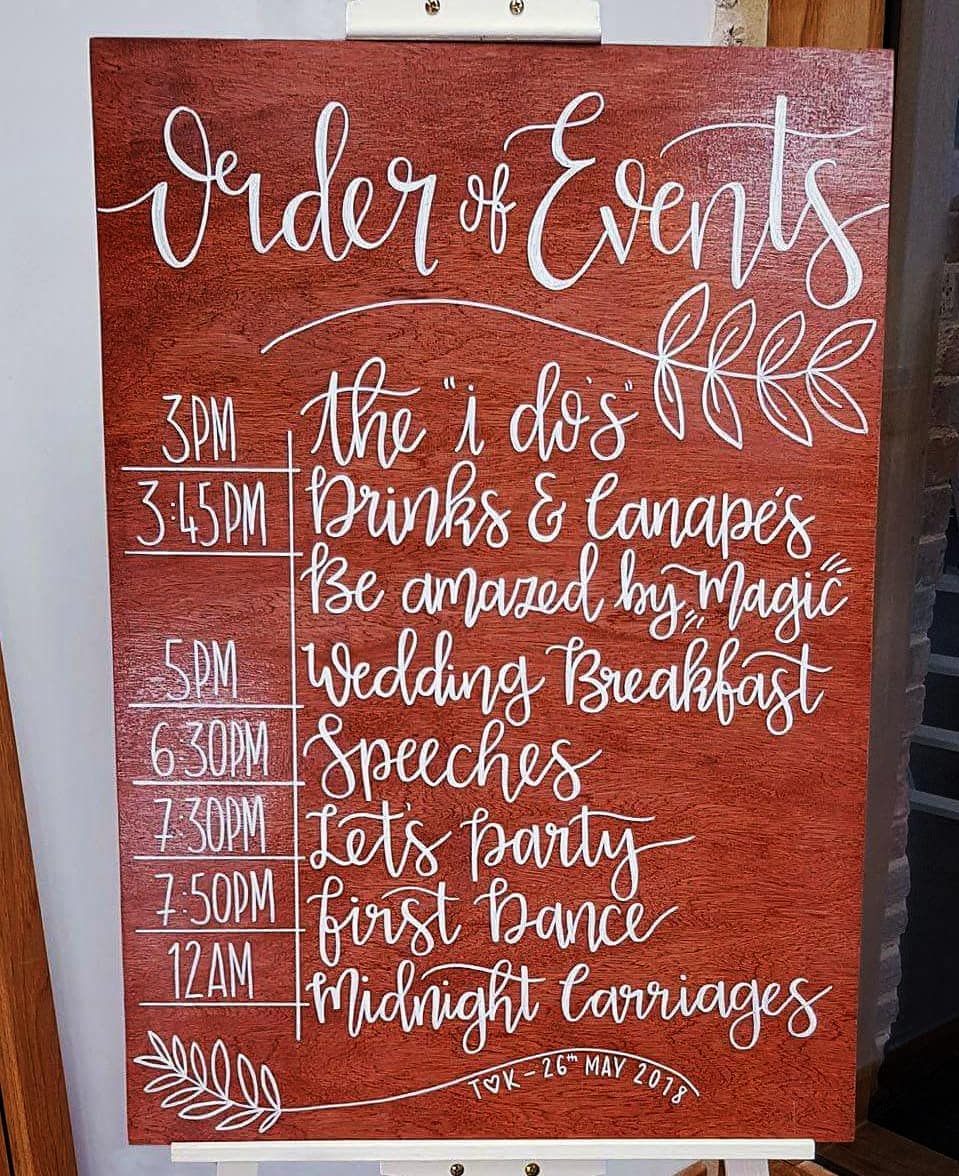 Order of Events
3PM the "i do's"
3:45PM Drinks & Canapé's
Be amazed by magic
5PM Wedding Breakfast
6:30PM Speeches
7:30PM Let's party
7:50PM first Dance
12AM Midnight Carriages
T♡K - 26th MAY 2018